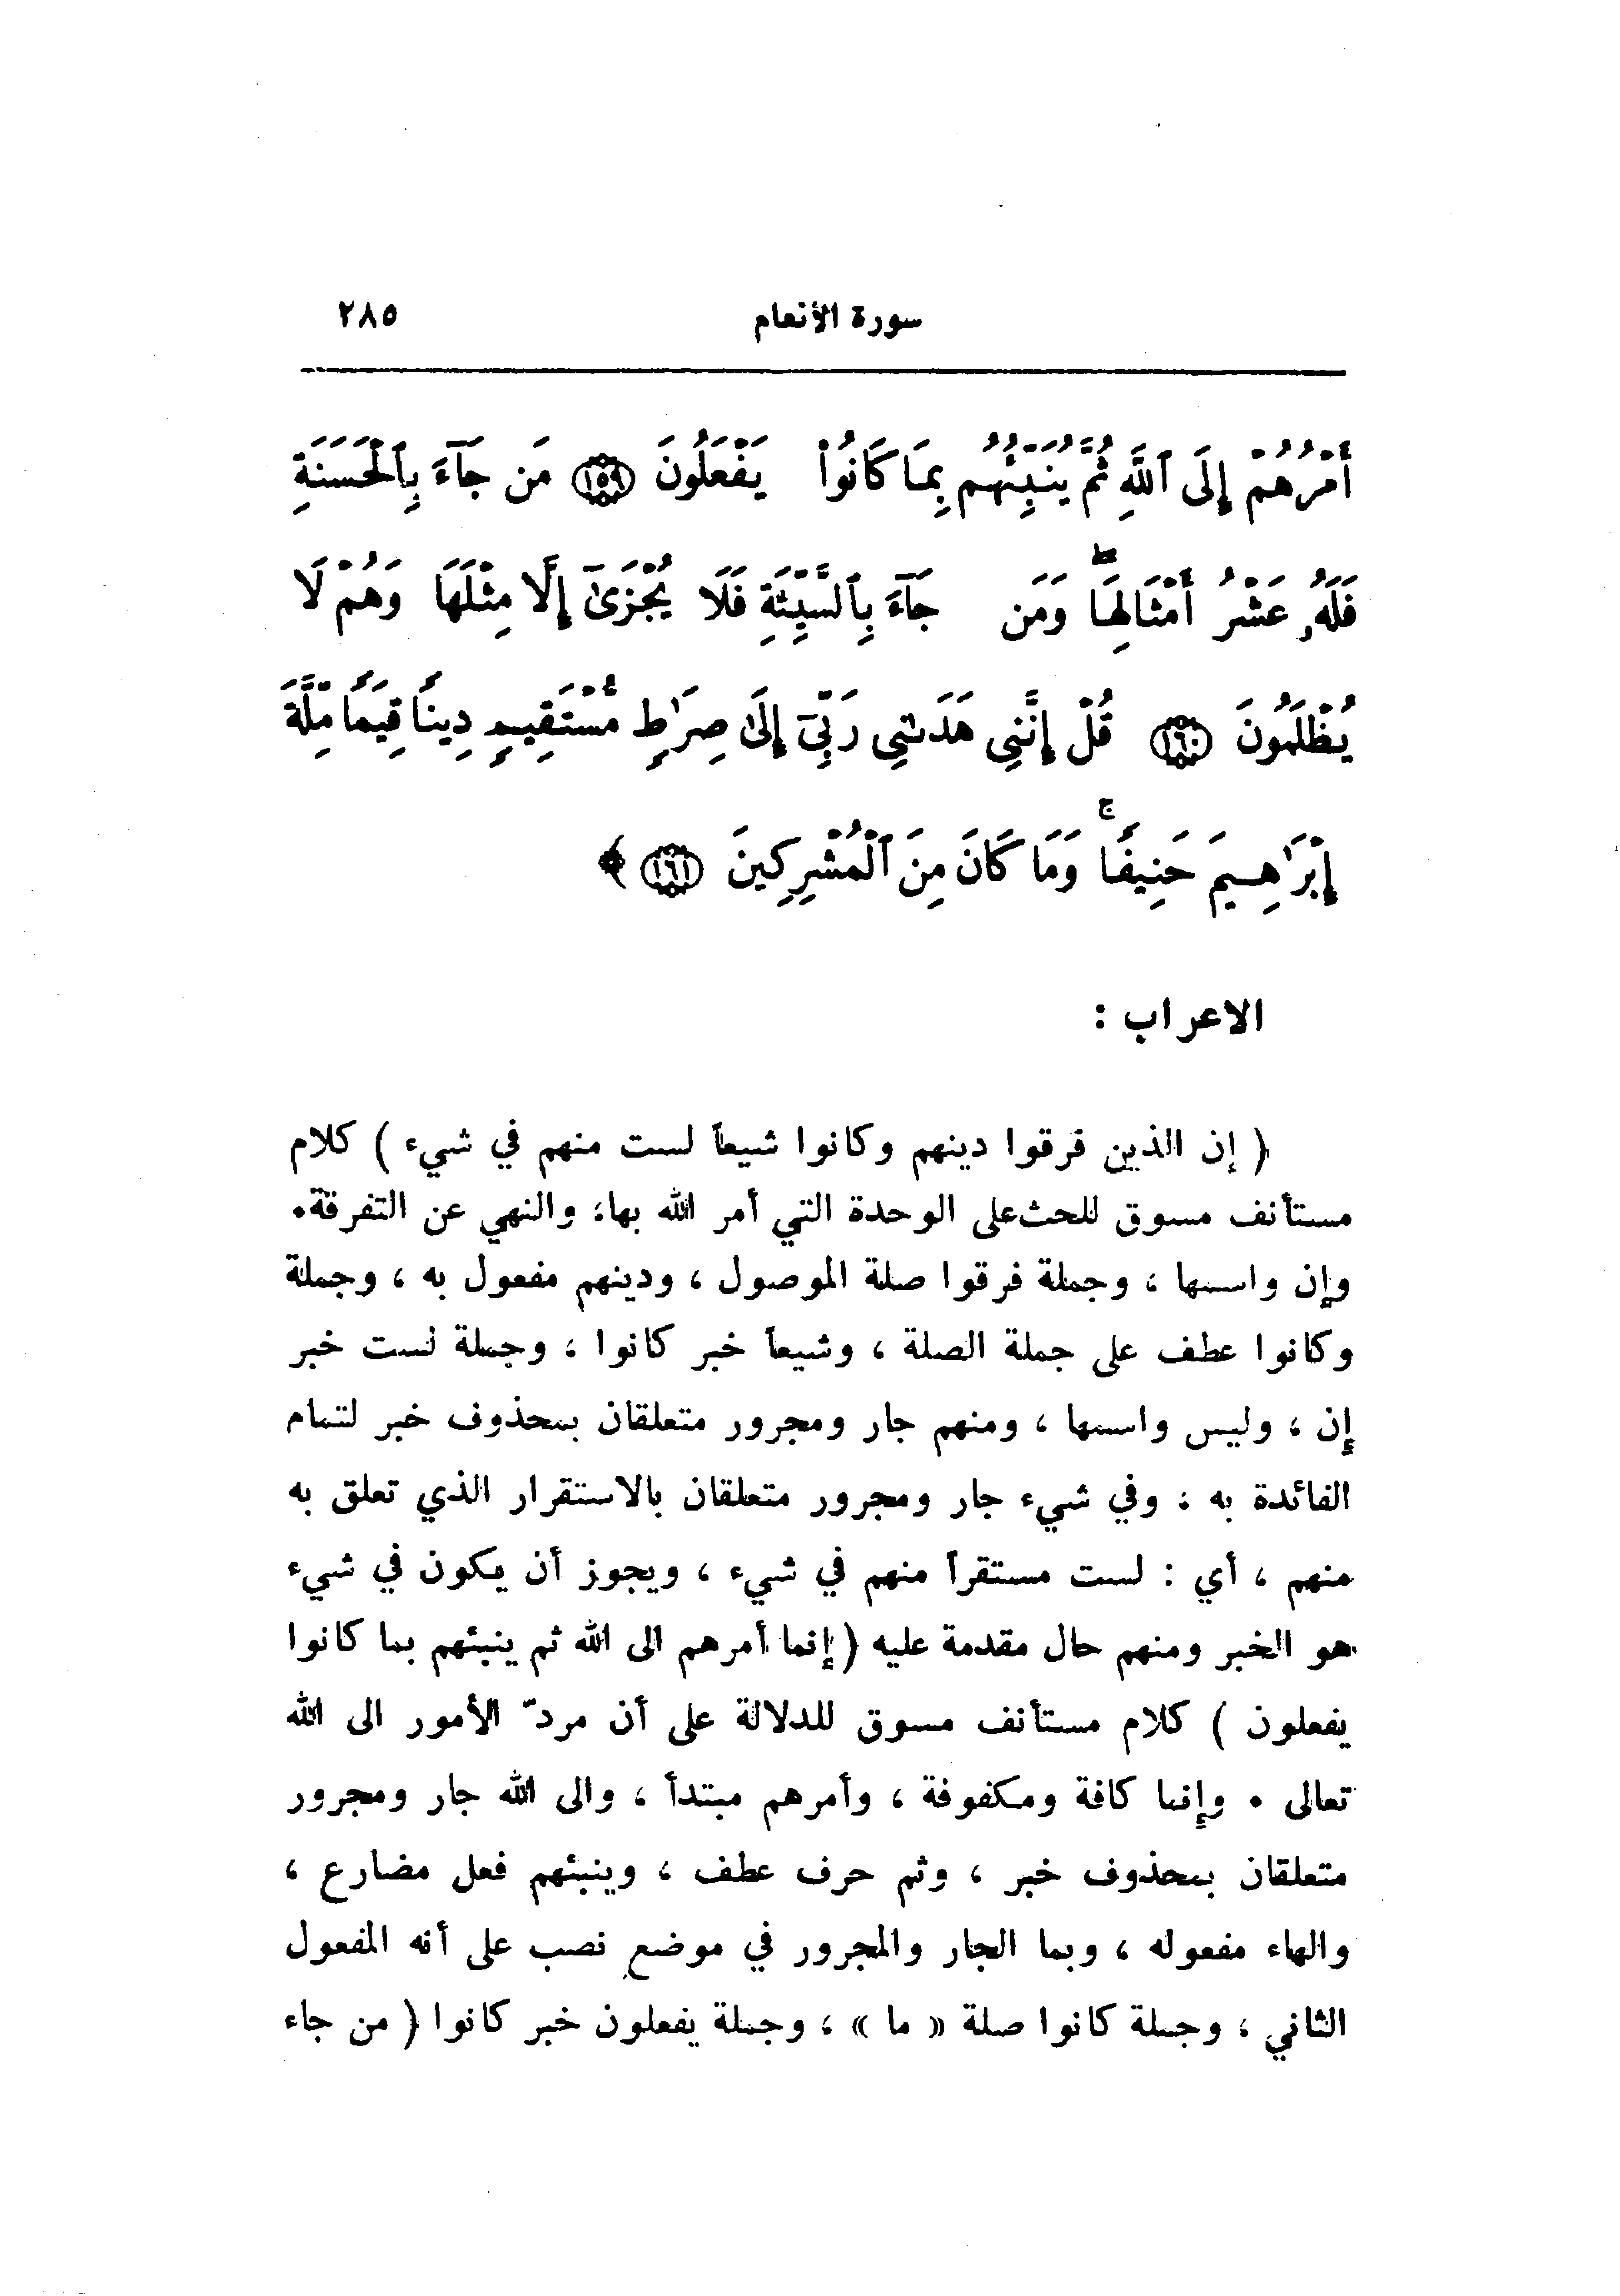 سورة الأنعام ٢٨٥
أَمْرُهُمْ إِلَى ٱللَّهِ ثُمَّ يُنَبِّئُهُم بِمَا كَانُوا۟ يَفْعَلُونَ ﴿١٥٩﴾ مَن جَآءَ بِٱلْحَسَنَةِ
فَلَهُۥ عَشْرُ أَمْثَالِهَا ۖ وَمَن جَآءَ بِٱلسَّيِّئَةِ فَلَا يُجْزَىٰٓ إِلَّا مِثْلَهَا وَهُمْ لَا
يُظْلَمُونَ ﴿١٦٠﴾ قُلْ إِنَّنِى هَدَىٰنِى رَبِّىٓ إِلَىٰ صِرَٰطٍ مُّسْتَقِيمٍ دِينًا قِيَمًا مِّلَّةَ
إِبْرَٰهِيمَ حَنِيفًا ۚ وَمَا كَانَ مِنَ ٱلْمُشْرِكِينَ ﴿١٦١﴾ ﴾
الاعراب :
( إن الذين فرقوا دينهم وكانوا شيعاً لست منهم في شيء ) كلام
مستأنف مسوق للحث على الوحدة التي أمر الله بها، والنهي عن التفرقة.
وإن واسمها ، وجملة فرقوا صلة الموصول ، ودينهم مفعول به ، وجملة
وكانوا عطف على جملة الصلة ، وشيعاً خبر كانوا ، وجملة لست خبر
إن ، وليس واسمها ، ومنهم جار ومجرور متعلقان بمحذوف خبر لتمام
الفائدة به ، وفي شيء جار ومجرور متعلقان بالاستقرار الذي تعلق به
منهم ، أي : لست مستقراً منهم في شيء ، ويجوز أن يكون في شيء
هو الخبر ومنهم حال مقدمة عليه ( إنما أمرهم الى الله ثم ينبئهم بما كانوا
يفعلون ) كلام مستأنف مسوق للدلالة على أن مردّ الأمور الى الله
تعالى . وإنما كافة ومكفوفة ، وأمرهم مبتدأ ، والى الله جار ومجرور
متعلقان بمحذوف خبر ، وثم حرف عطف ، وينبئهم فعل مضارع ،
والهاء مفعوله ، وبما الجار والمجرور في موضع نصب على أنه المفعول
الثاني ، وجملة كانوا صلة « ما » ، وجملة يفعلون خبر كانوا ( من جاء